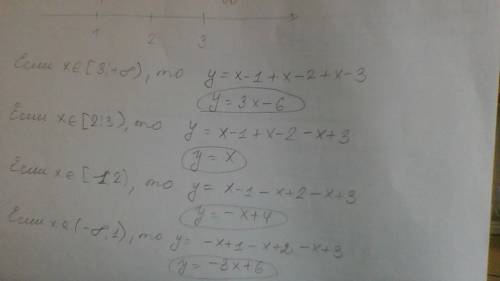 1 2 3
Если x∈[3;+∞), то y = x-1+x-2+x-3
y = 3x-6
Если x∈[2;3), то y = x-1+x-2-x+3
y = x
Если x∈[1 2), то y = x-1-x+2-x+3
y = -x+4
Если x∈(-∞;1), то y = -x+1-x+2-x+3
y = -3x+6